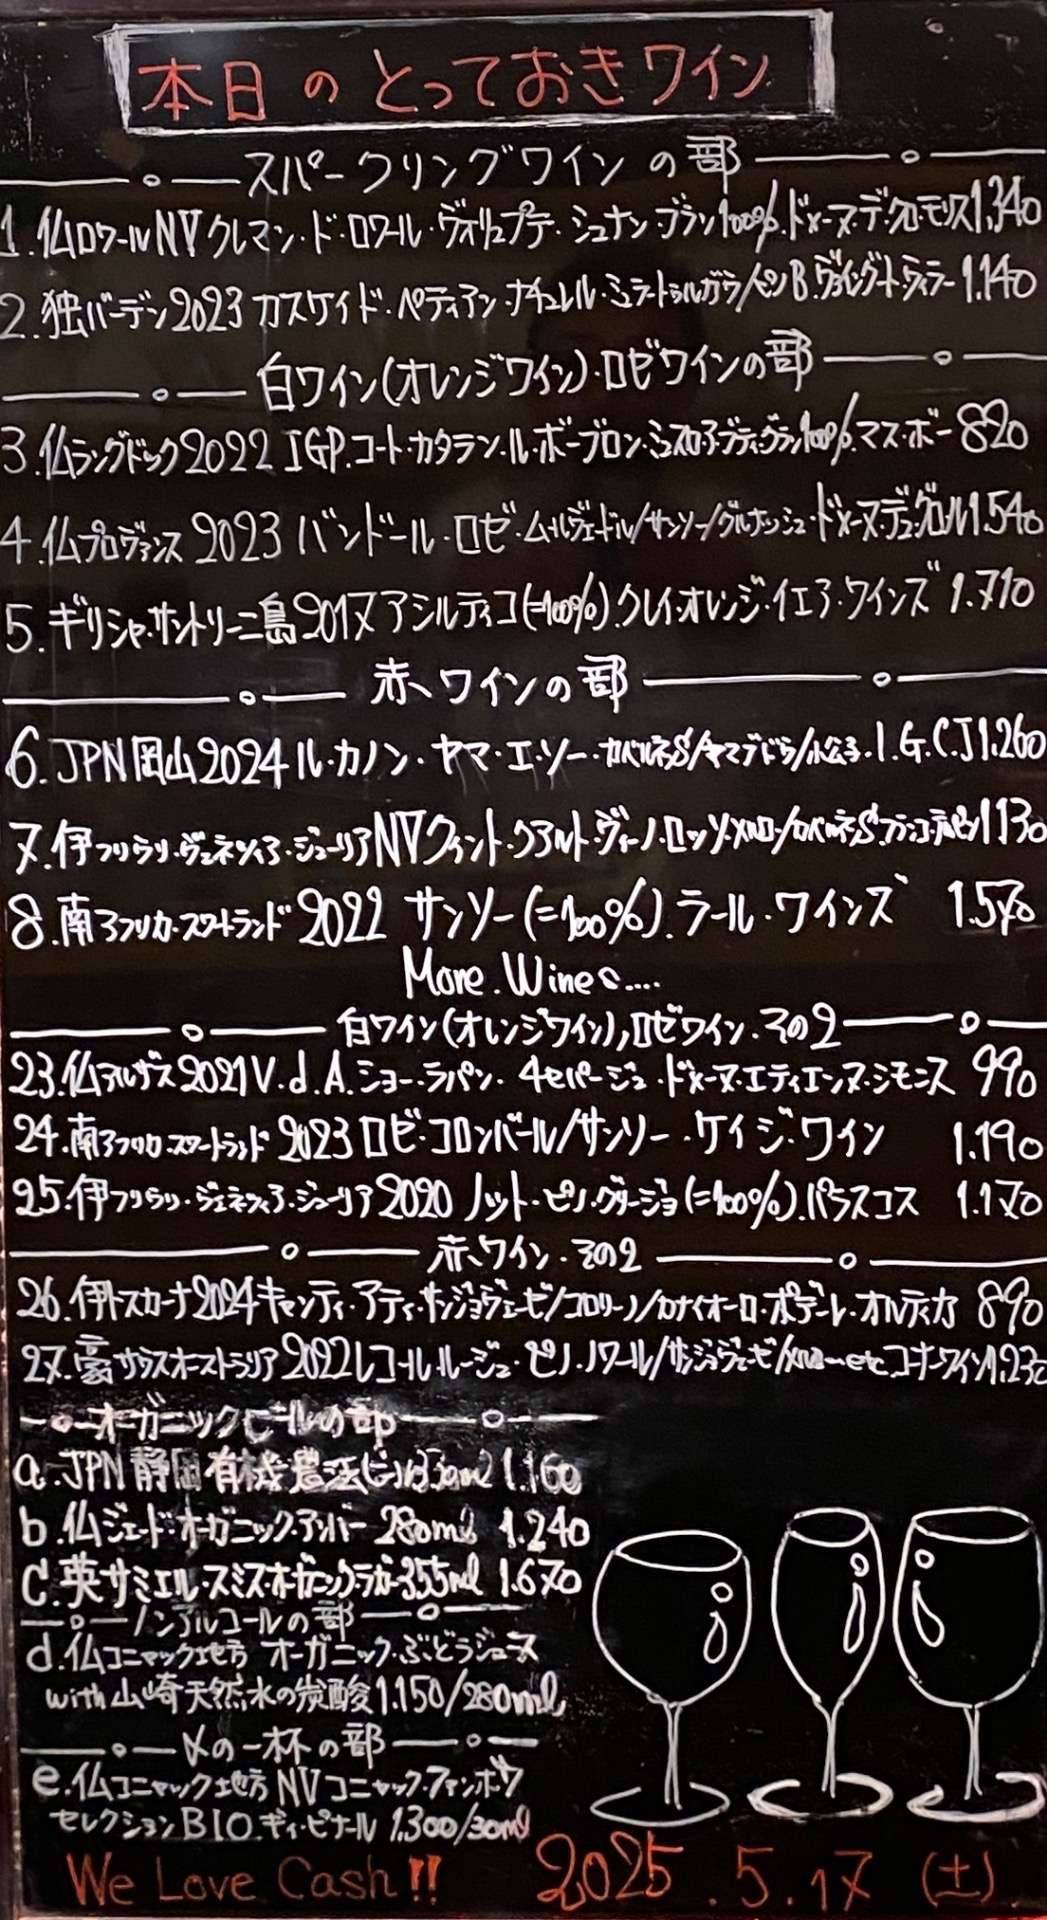 本日のとっておきワイン
スパークリングワインの部
1.仏ロワールNVクレマン・ド・ロワール・ヴォリュプテ・シュナン・ブラン100%.ドメーヌ・デ・クロ・モリス1.340
2.独バーデン2023カスケイド・ペティアンナチュレル・ミュラートゥルガウ/ピンB.ヴァイングートヴィラー1.140
白ワイン(オレンジワイン)・ロゼワインの部
3.仏ラングドック2022 IGP.コート・カタラン・ル・ボーブロン・ミュスカアプティグラン100%.マス・ボー820
4.仏プロヴァンス2023 バンドール・ロゼ・ムールヴェードル/サンソー/グルナッシュ・ドメーヌ・デュ・グロル1.540
5.ギリシャ・サントリーニ島2017アシルティコ(=100%).クレイ・オレンジ・イエア・ワインズ 1.710
赤ワインの部
6.JPN岡山2024ル・カノン・ヤマ・エ・ソー・カベルネS/ヤマブドウ/小公子.I.G.C.J1.260
7.伊フリウリ・ヴェネツィア・ジューリアNVクイント・クアルト・ヴィーノ・ロッソ・メルロ/カベルネS.フランコ・テルピン1130
8.南アフリカ・スワートランド2022 サンソー(=100%).ラール・ワインズ 1.570
More.Wines....
白ワイン(オレンジワイン),ロゼワイン・その2
23.仏アルザス2021V.d.A.ショー・ラパン・4セパージュ・ドメーヌ・エティエンヌ・シモニス 990
24.南アフリカ・スワートランド 2023ロゼ・コロンバール/サンソー・ケイジ・ワイン 1.190
25.伊フリウリ・ヴェネツィア・ジューリア2020ノット・ピノ・グリージョ(=100%).パラスコス 1.170
赤ワイン・その2
26.伊トスカーナ2024キャンティ・アティ・サンジョヴェーゼ/コロリーノ/カナイオーロ・ポデーレ・オルティカ 890
27.豪サウスオーストラリア2022レコールルージュ・ピノ・ノワール/サンジョヴェーゼ/メルローetc.コナーワイン1.230
オーガニックビールの部
a.JPN静岡有機農法(ビン)330ml 1.160
b.仏ジェード・オーガニック・アンバー 280ml 1.240
C.英サミエル・スミス・オーガニック・ラガー355ml 1.670
ノンアルコールの部
d.仏コニャック地方 オーガニック・ぶどうジュース
with山崎天然水の炭酸1.150/280ml
〆の一杯の部
e.仏コニャック地方NVコニャック・ファンボワ
セレクションBIO.ギィ・ピナール 1.300/30ml
We Love Cash!! 2025.5.17(土)